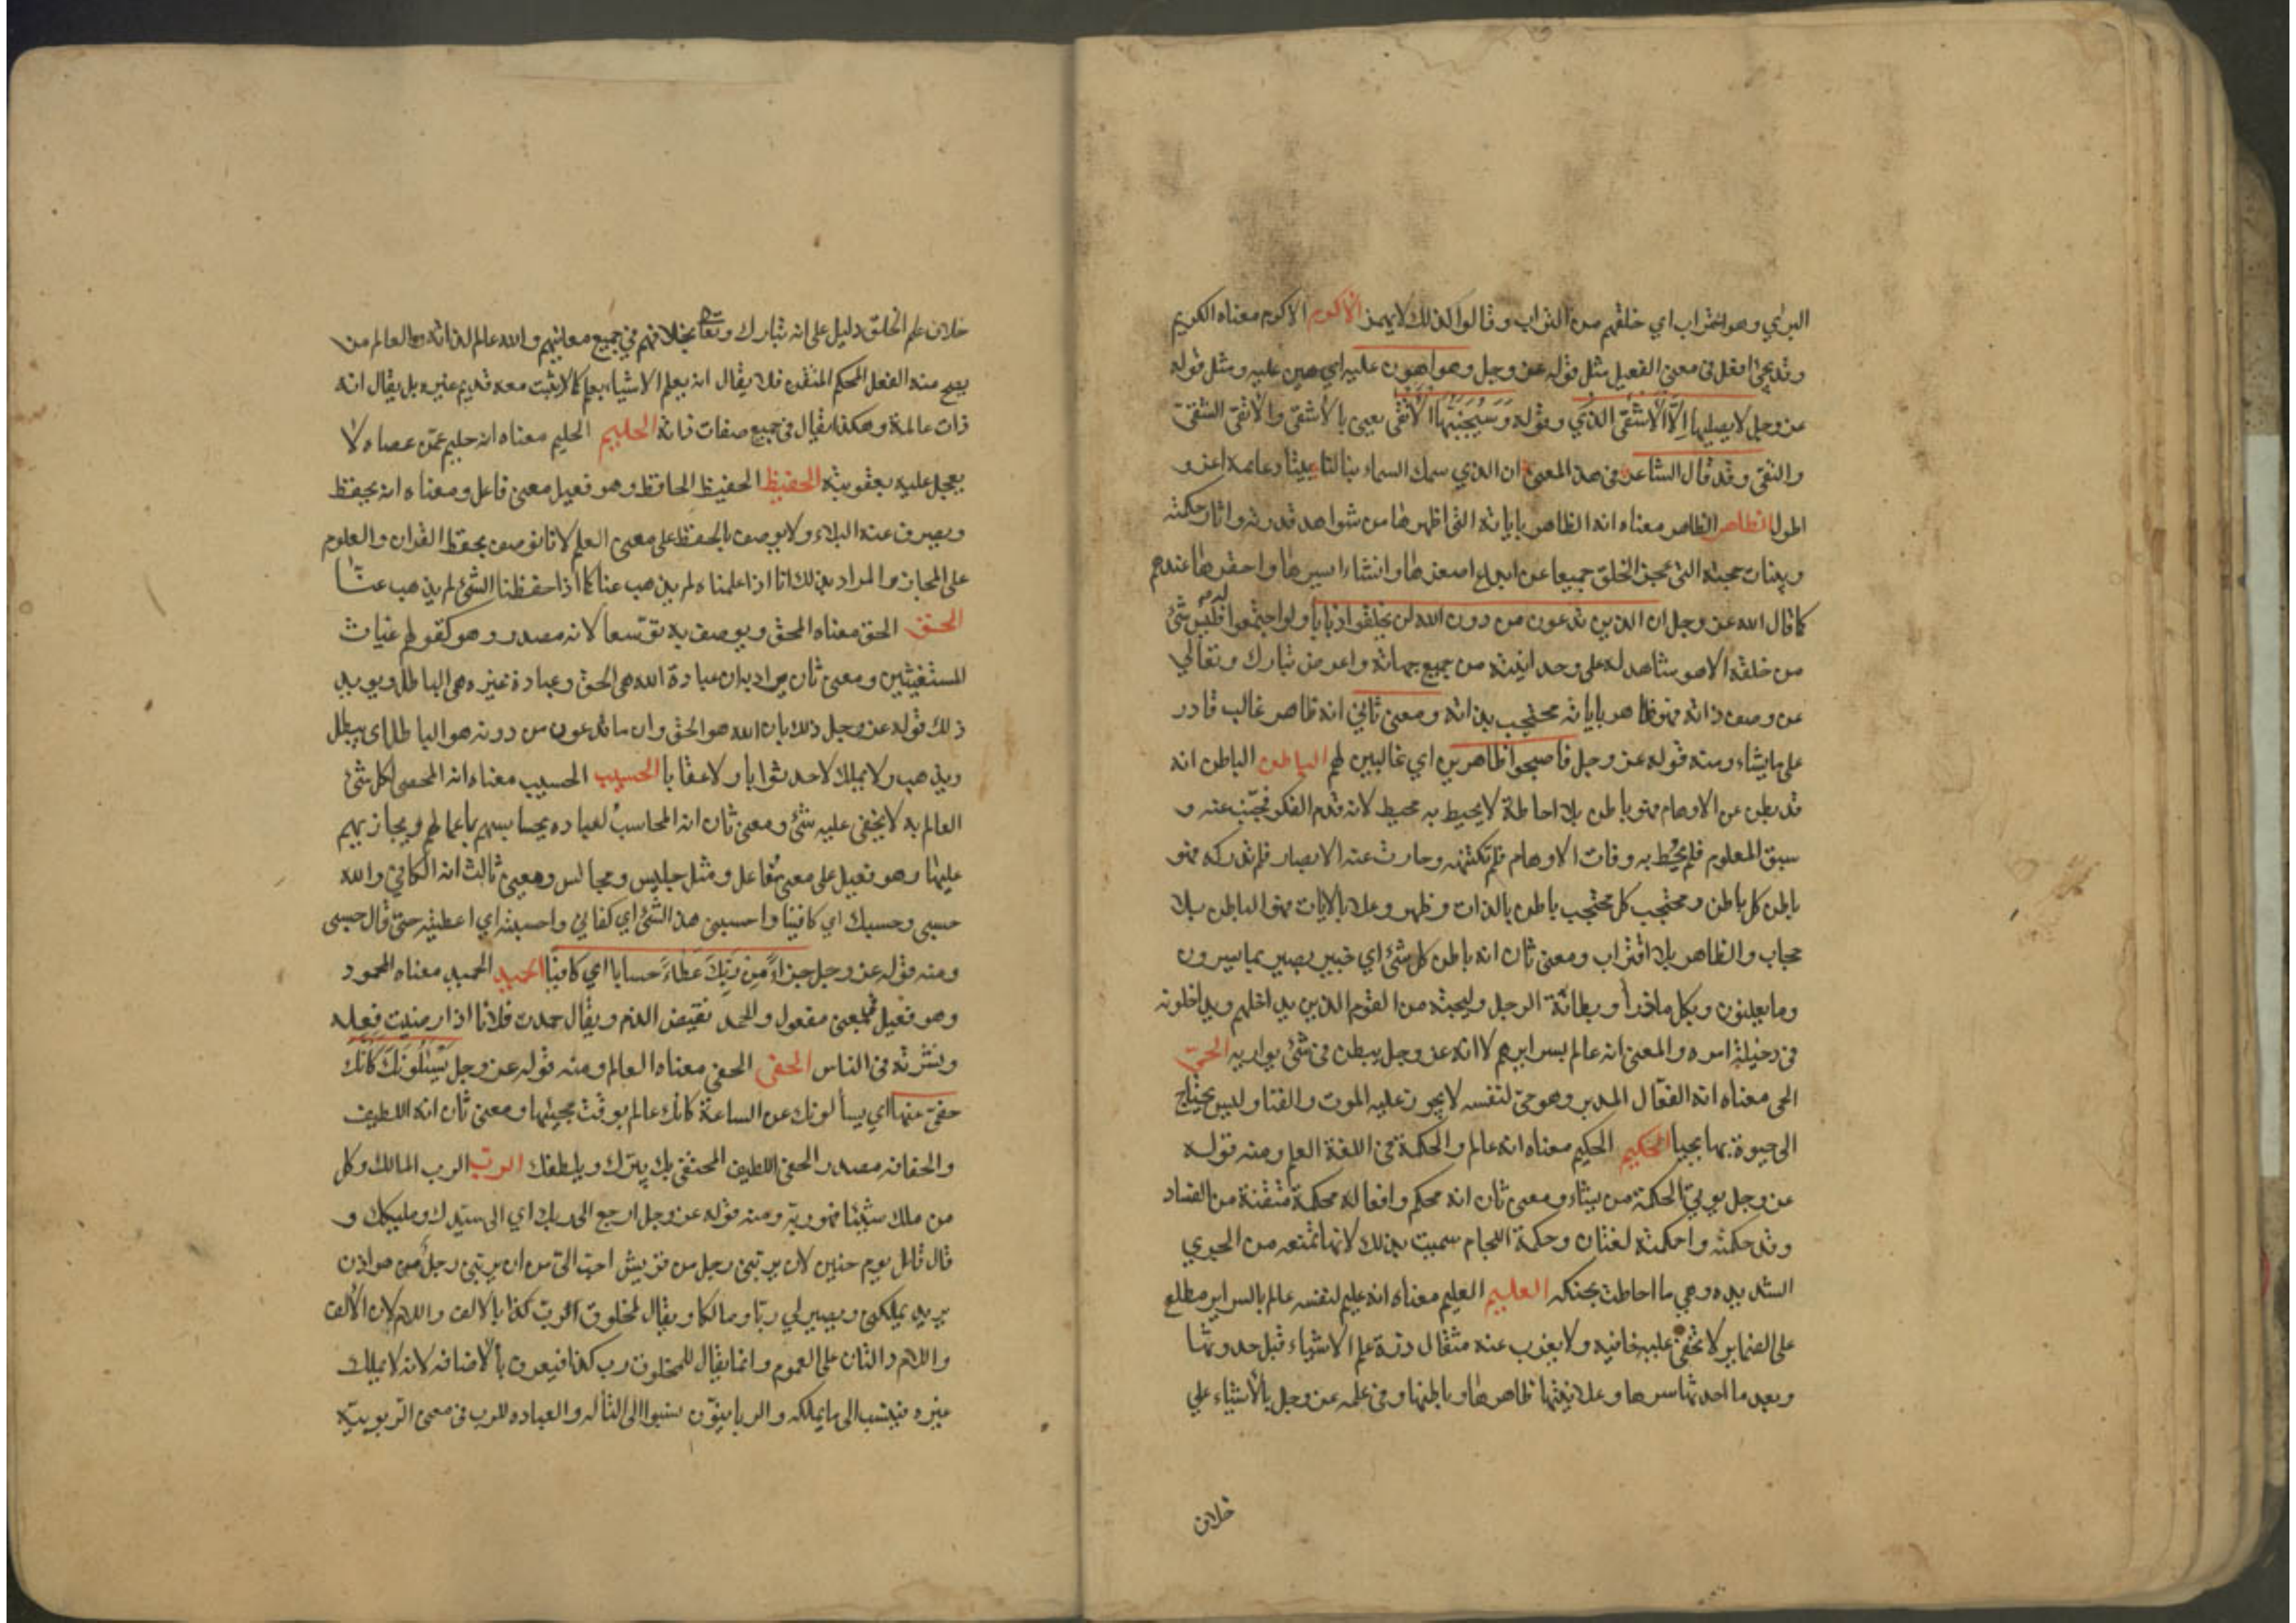 البرئ وهو التراب اي خلقهم من التراب وقالوا لذلك لا يهمز الاكرم الاكرم معناه الكريم
وقد يجئ افعل في معنى الفعيل مثل قوله عز وجل وهو اهون عليه اي هين عليه ومثل قوله
عز وجل لا يصليها اِلَّا الْاَشْقَى الذي وقوله وَسَيُجَنَّبُهَا الْاَتْقَى يعني بالاشقى والاتقى الشقى
والتقى وقد قال الشاعر في هذا المعنى ان الذي سمك السماء بنا لنا بيتا دعايمه اعز و
اطول الظاهر الظاهر معناه انه الظاهر باياته التي اظهرها من شواهد قدرته واثار حكمته
وبينات حجته التي عجز الخلق جميعا عن ابداع اصغرها وانشاء ايسرها واحقرها عندهم
كما قال الله عز وجل ان الذين تدعون من دون الله لن يخلقوا ذبابا ولو اجتمعوا له فليس شئ
من خلقه الا هو شاهد له على وحدانيته من جميع جهاته واعرض تبارك وتعالي
عن وصف ذاته فهو ظاهر باياته محتجب بذاته ومعنى ثاني انه ظاهر غالب قادر
على ما يشاء ومنه قوله عز وجل فاصبحوا ظاهرين اي غالبين لهم الباطن الباطن انه
قد بطن عن الاوهام فهو باطن بلا احاطة لا يحيط به محيط لانه قدم الفكر فجنب عنه و
سبق المعلوم فلم يُحط به وفات الاوهام فلم تكتنهه وحارت عنه الابصار فلم تدركه فهو
باطن كل باطن ومحتجب كل محتجب باطن بالذات وظهر وعلا بالايات فهو الباطن بلا
حجاب والظاهر بلا اقتراب ومعنى ثان انه باطن كل شئ اي خبير بصير بما يسرون
وما يعلنون وبكل ما ذرأ وبطانة الرجل وليجته من القوم الذين يداخلهم ويداخلونه
في دخيلة امره والمعنى انه عالم بسرايرهم لا انه عز وجل يبطن في شئ يواريه الحىّ
الحى معناه انه الفعّال المدبر وهو حىّ لنفسه لا يجوز عليه الموت والفنا وليس يحتاج
الى حيوة بها يحيا الحكيم الحكيم معناه انه عالم والحكمة في اللغة العلم ومنه قوله
عز وجل يوتي الحكمة من يشاء ومعنى ثان انه محكم وافعاله محكمة متقنة من الفساد
وقد حكمته واحكمته لغتان وحكمة اللجام سميت بذلك لانها تمنعه من الجري
الشديد وهي ما احاطت بحنكه العليم العليم معناه انه عليم لنفسه عالم بالسراير مطلع
على الضماير لا تخفى عليه خافيه ولا يعزب عنه مثقال ذرة علم الاشياء قبل حدوثها
وبعد ما احدثها سرها وعلانيتها ظاهرها وباطنها وفي علمه عز وجل بالاشياء علي
خلاف
خلاف علم الخلق دليل على انه تبارك وتعالى بخلافهم في جميع معانيهم والله عالم لذاته والعالم من
يصح منه الفعل المحكم المتقن فلا يقال انه يعلم الاشياء بعلم كما لا يثبت معه قديم غيره بل يقال انه
ذات عالمة وهكذا يقال في جميع صفات ذاته الحليم الحليم معناه انه حليم عمّن عصاه لا
يعجل عليه بعقوبته الحفيظ الحفيظ الحافظ وهو فعيل معنى فاعل ومعناه انه يحفظ
ويصرف عنه البلاء ولا يوصف بالحفظ على معنى العلم لانا نوصف بحفظ القران والعلوم
على المجاز والمراد بذلك انا اذا علمناه لم يذهب عنا كما اذا حفظنا الشئ لم يذهب عنّا
الحق الحق معناه المحق ويوصف به توسّعا لانه مصدر وهو كقولهم غياث
المستغيثين ومعنى ثان يراد به ان عبادة الله هى الحق وعبادة غيره هي الباطل ويويد
ذلك قوله عز وجل ذلك بان الله هو الحق وان ما تدعون من دونه هو الباطل اى يبطل
ويذهب ولا يملك لاحد ثوابا ولا عقابا الحسيب الحسيب معناه انه المحصى لكل شئ
العالم به لا يخفى عليه شئ ومعنى ثان انه المحاسبُ لعباده يحاسبهم باعمالهم ويجازيهم
عليها وهو فعيل على معنى مُفاعل ومثل جليس ومجالس ومعنى ثالث انه الكافي والله
حسبي وحسبك اي كافينا واحسبني هذا الشئ اي كفاني واحسبته اي اعطيته حتى قال حسبى
ومنه قوله عز وجل جزاءً مِن رَبِّكَ عَطاءً حسابا اي كافيًا الحميد الحميد معناه المحمود
وهو فعيل فى معنى مفعول والحمد نقيض الذم ويقال حمدت فلانا اذا رضيت فعله
ونشرته في الناس الحفى الحفى معناه العالم ومنه قوله عز وجل يَسْئَلُونَكَ كَاَنَّكَ
حفىّ عنها اي يسألونك عن الساعة كانك عالم بوقت مجيئها ومعنى ثان انه اللطيف
والحفايه مصدر الحفى اللطيف المحتفى بك يبرّك ويلطفك الربّ الرب المالك وكل
من ملك شيئا فهو ربّه ومنه قوله عز وجل ارجع الى ربك اي الى سيّدك ومليكك و
قال قائل يوم حنين لان يربّني رجل من قريش احبّ الىّ من ان يربّني رجلٌ من هوازن
يريد يملكني ويصير لي ربّا ومالكا ولا يقال لمخلوق الربّ كذا بالالف واللام لان الالف
واللام دالتان على العموم وانما يقال للمخلوق رب كذا فيعرف بالاضافه لانه لا يملك
غيره فينسب الى ما يملكه والربانيّون نسبوا الى التأله والعباده للرب في معنى الربوبيّه